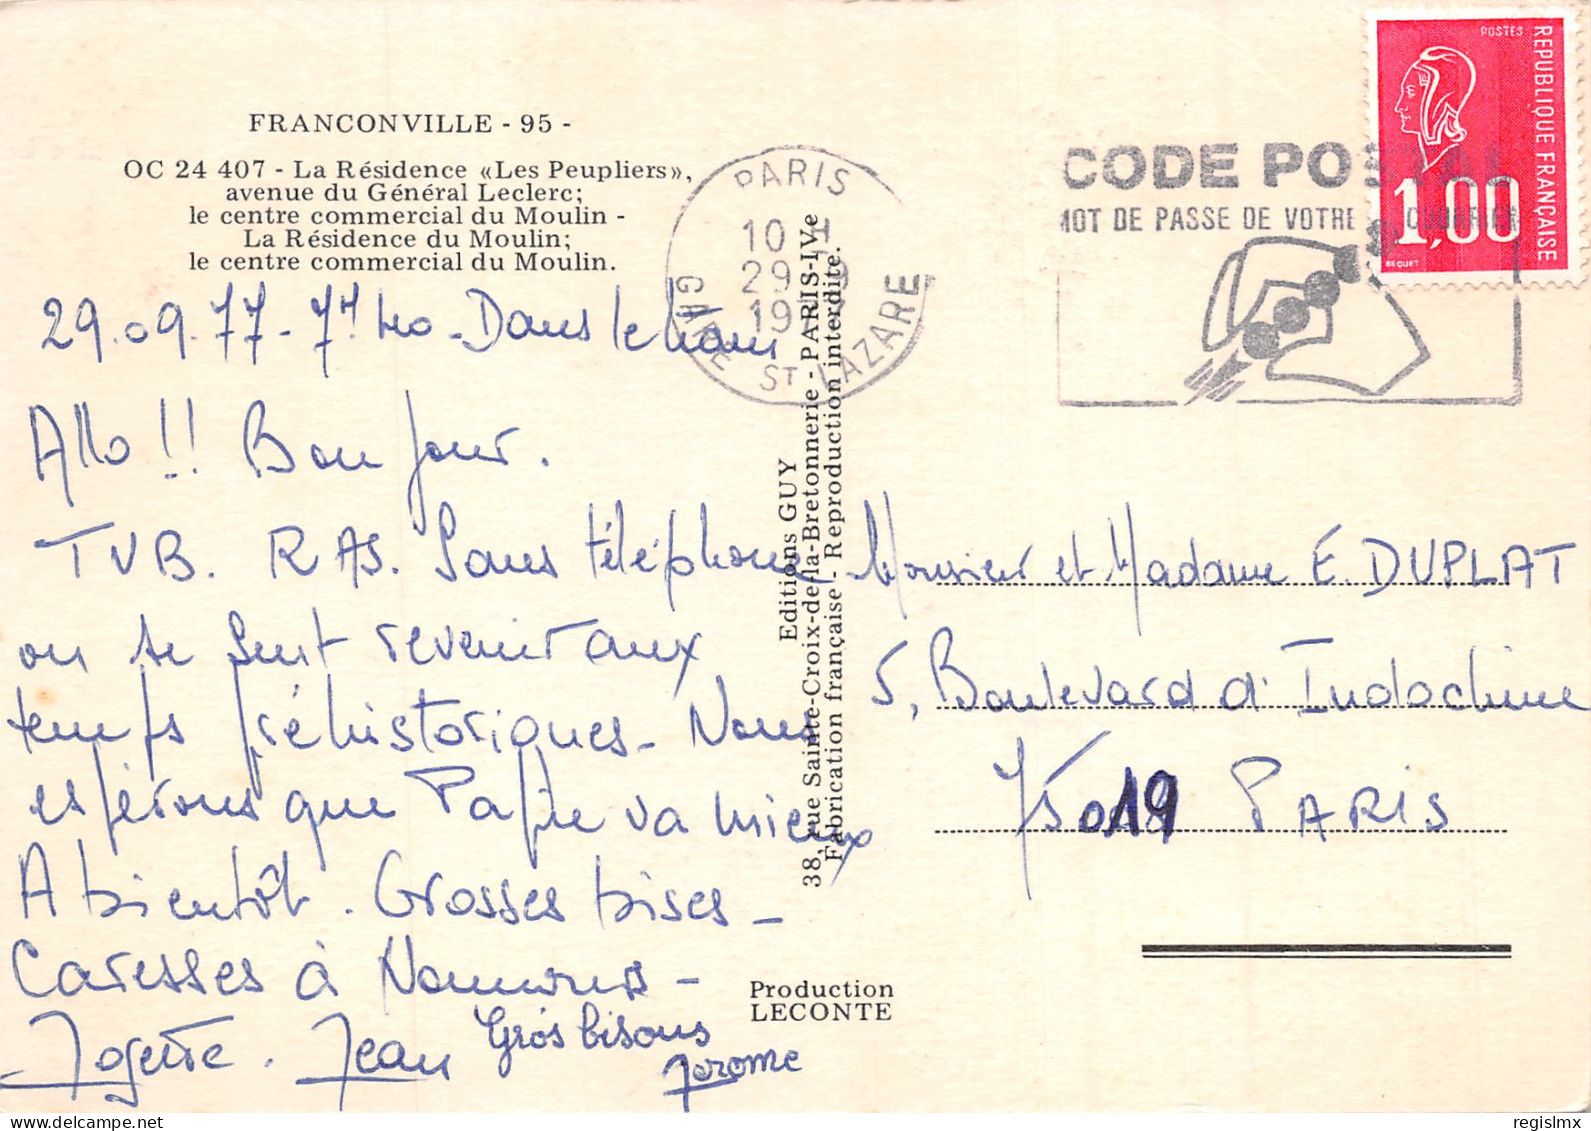 FRANCONVILLE - 95 -
OC 24 407 - La Résidence «Les Peupliers»,
avenue du Général Leclerc;
le centre commercial du Moulin -
La Résidence du Moulin;
le centre commercial du Moulin.
29.09.77 - 7H40 - Dans le train
Allo !! Bonjour.
TVB. RAS. Sans téléphone
on se sent revenir aux
temps préhistoriques - Nous
espérons que Papie va mieux
A bientôt. Grosses bises -
Caresses à Nounours -
Jean
Gros bisous
Jerome
Editions GUY
38, rue Sainte-Croix-de-la-Bretonnerie - PARIS-IVe
Fabrication française - Reproduction interdite.
Production
LECONTE
PARIS
10 H
29 - 9
1977
GARE ST LAZARE
CODE POSTAL
MOT DE PASSE DE VOTRE COURRIER
POSTES
REPUBLIQUE FRANÇAISE
1,00
BEQUET
Monsieur et Madame E. DUPLAT
5, Boulevard d'Indochine
75019 PARIS
regislmx